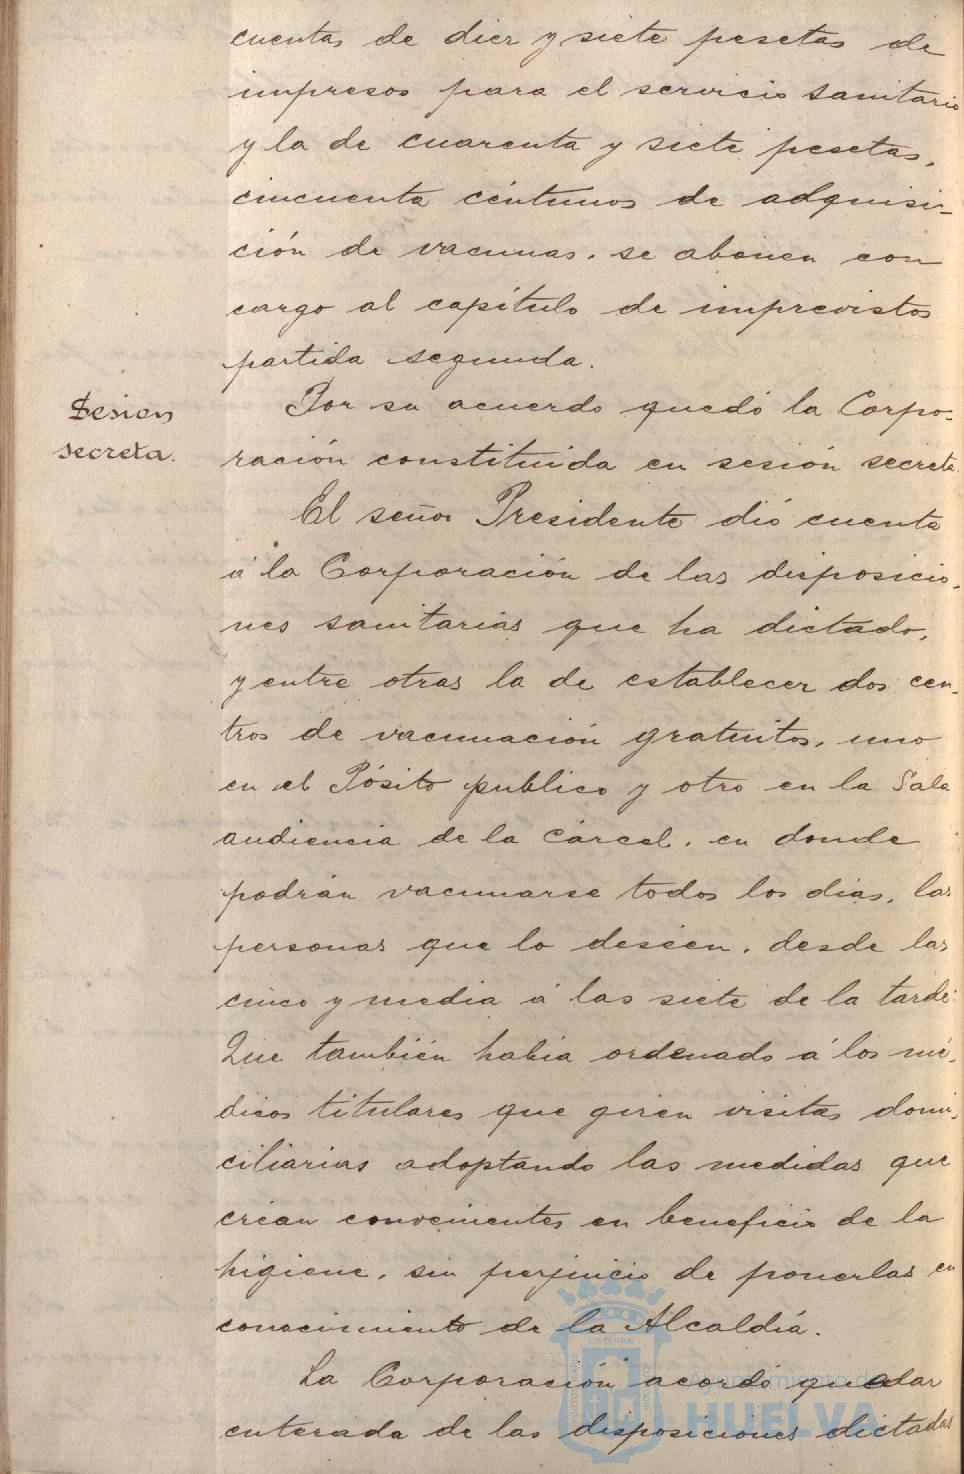 cuentas de diez y siete pesetas de
impresos para el servicio sanitario
y la de cuarenta y siete pesetas,
cincuenta céntimos de adquisi-
ción de vacunas, se abonen con
cargo al capítulo de imprevistos
partida segunda.
Sesion
secreta.
Por su acuerdo quedó la Corpo-
ración constituida en sesión secreta.
El señor Presidente dió cuenta
á la Corporación de las disposicio-
nes sanitarias que ha dictado,
y entre otras la de establecer dos cen-
tros de vacunación gratuitos, uno
en el Pósito publico y otro en la Sala
audiencia de la Cárcel, en donde
podrán vacunarse todos los dias, las
personas que lo deséen, desde las
cinco y media á las siete de la tarde:
Que también habia ordenado á los mé-
dicos titulares que giren visitas domi-
ciliarias adoptando las medidas que
crean convenientes en beneficio de la
higiene, sin perjuicio de ponerlas en
conocimiento de la Alcaldía.
La Corporación acordó quedar
enterada de las disposiciones dictadas
Ayuntamiento de
HUELVA